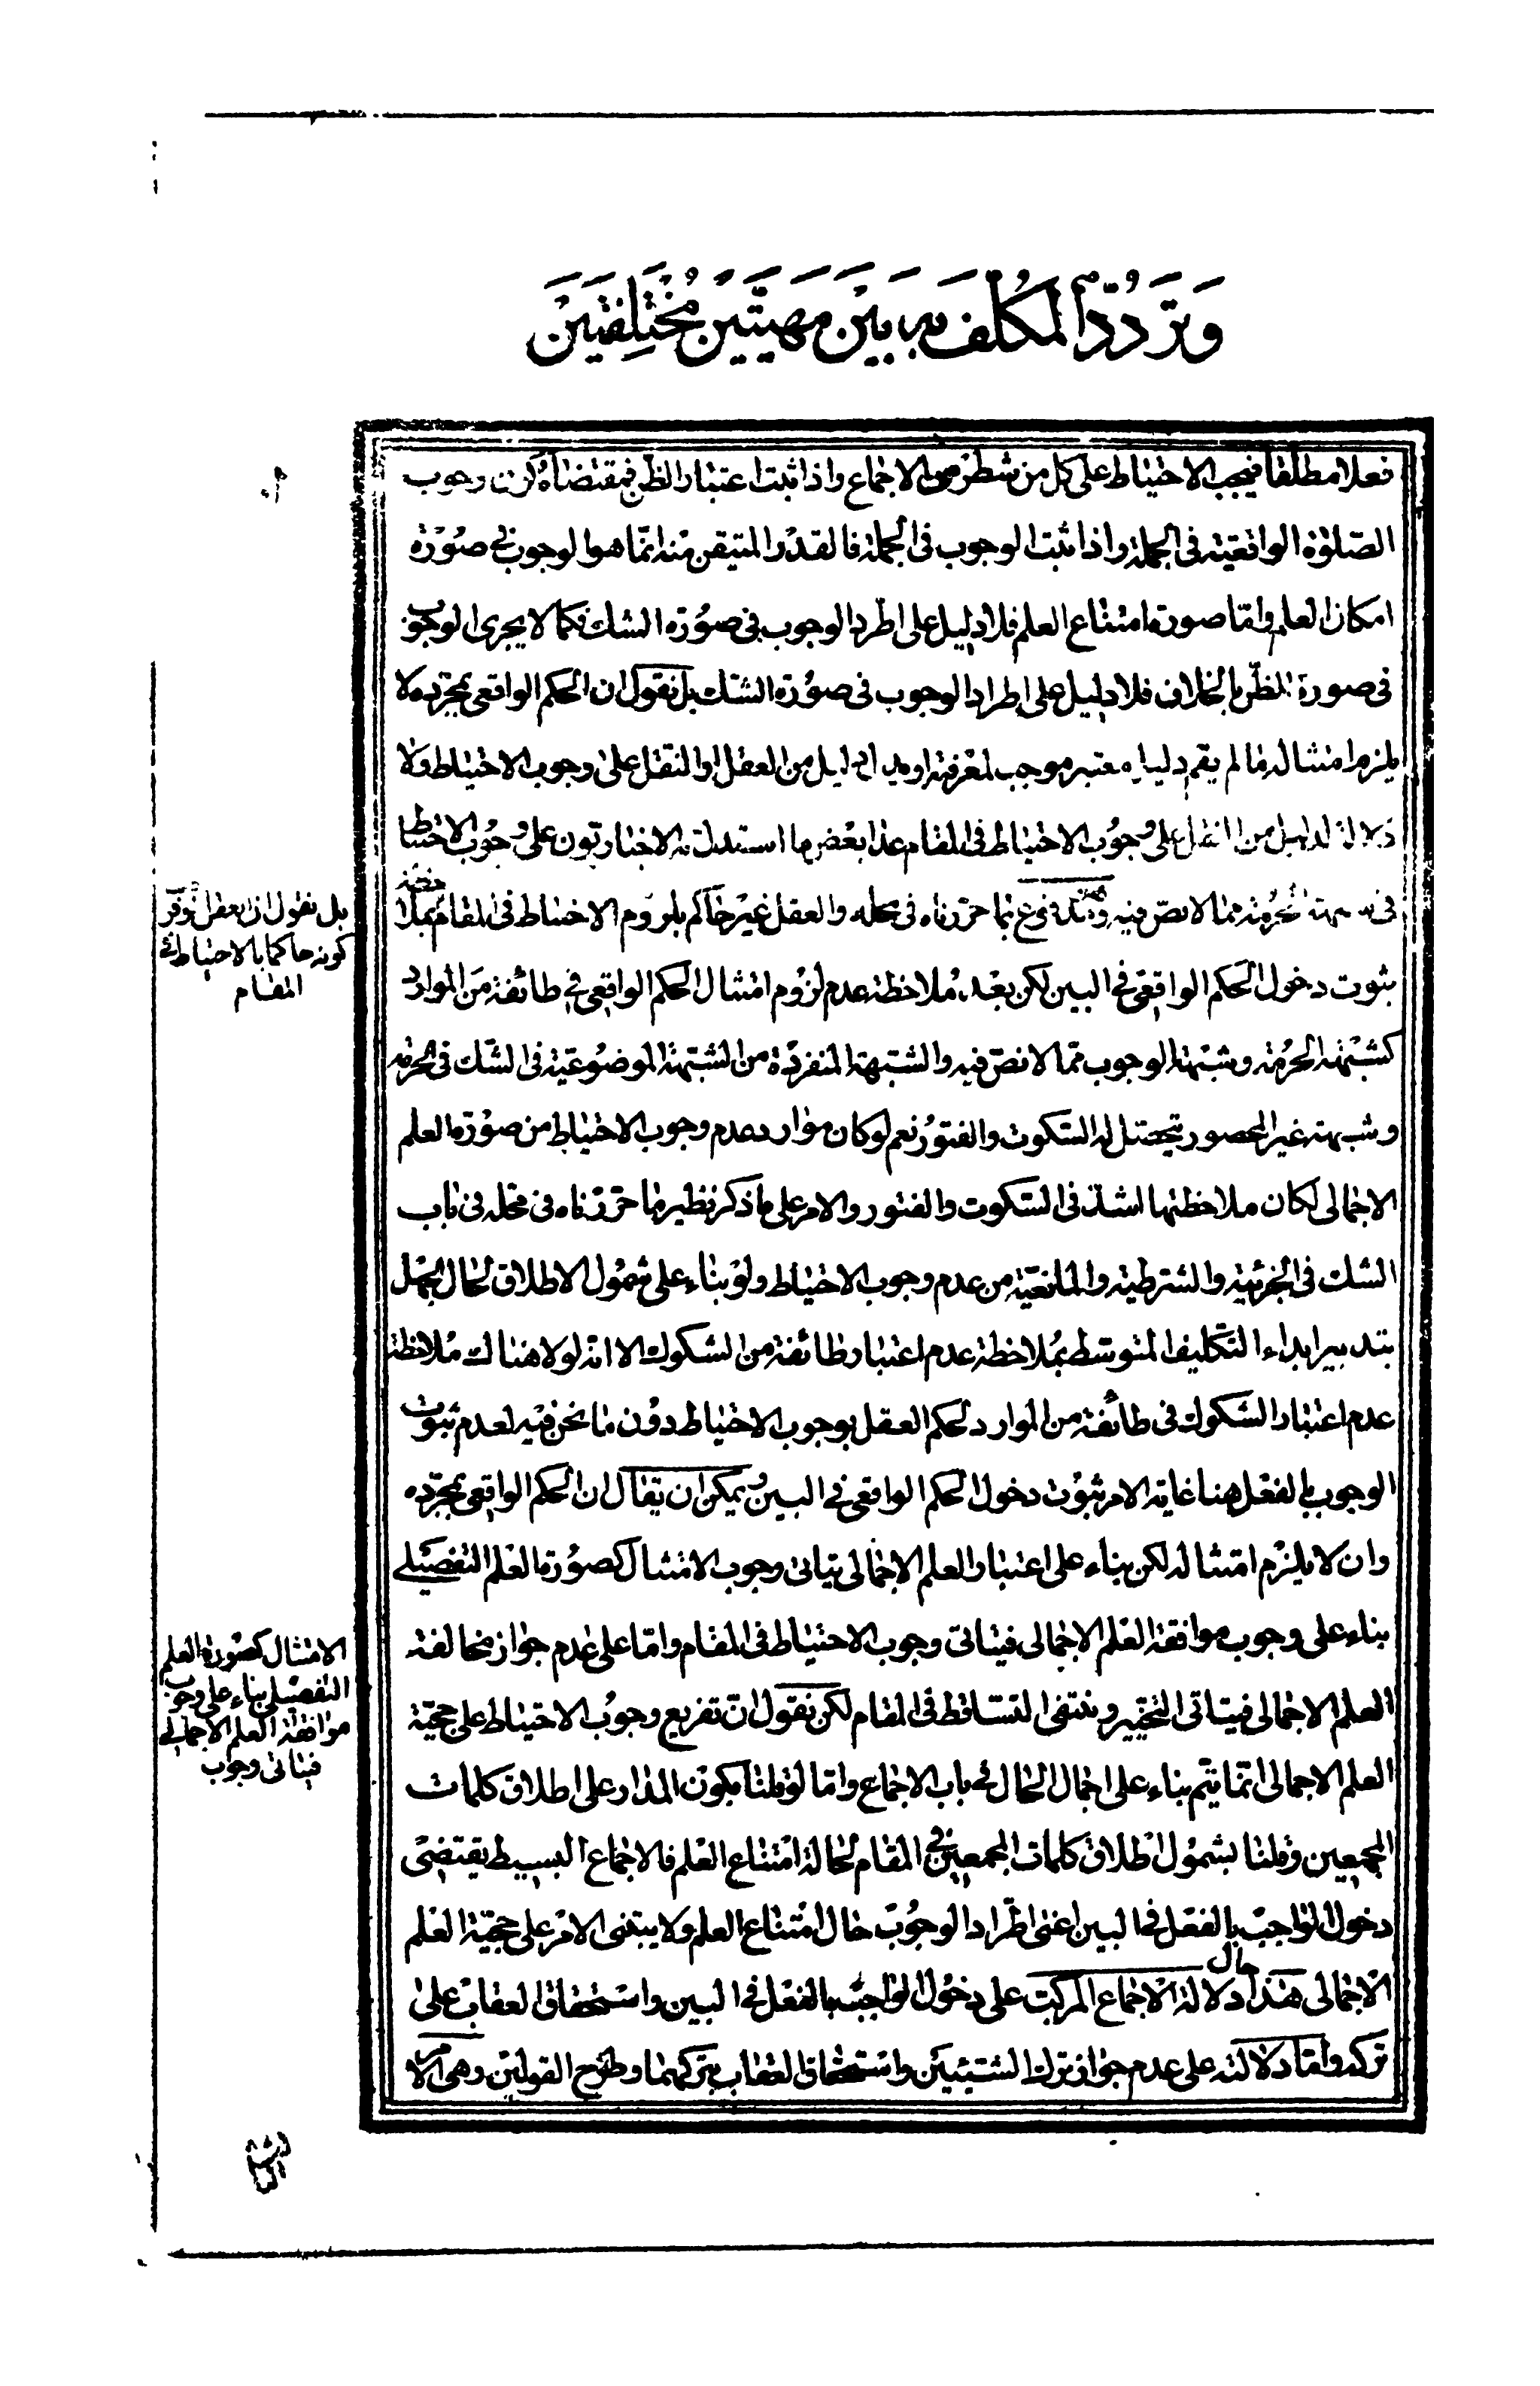 وَتَرَدُّدِ المُكَلَّفِ بِهِ بَيْنَ مَهِيَّتَيْنِ مُخْتَلِفَتَيْنِ
فعلا مطلقا فيجب الاحتياط على كل من شطرى الاجماع واذا ثبت اعتبار الظن فمقتضاه كون وجوب
الصلوة الواقعية فى الجملة واذا ثبت الوجوب فى الجملة فالقدر المتيقن منه انما هو الوجوب فى صورة
امكان العلم واما صورة امتناع العلم فلا دليل على اطراد الوجوب فى صورة الشك فكما لا يجرى الوجوب
فى صورة الظن بالخلاف فلا دليل على اطراد الوجوب فى صورة الشك بل نقول ان الحكم الواقعى بمجرده لا
يلزم امتثاله ما لم يقم دليل معتبر موجب لمعرفته او دليل من العقل او النقل على وجوب الاحتياط ولا
دلالة لدليل من النقل على وجوب الاحتياط فى المقام عدا بعض ما استدلت به الاخباريون على وجوب الاحتياط
فى شبهة الحرمة مما لا نص فيه بما حررناه فى محله والعقل غير حاكم بلزوم الاحتياط فى المقام بملاحظة
ثبوت دخول الحكم الواقعى فى البين لكن بعد ملاحظة عدم لزوم امتثال الحكم الواقعى فى طائفة من الموارد
كشبهة الحرمة وشبهة الوجوب مما لا نص فيه والشبهة المنفردة من الشبهة الموضوعية فى الشك فى الحرمة
وشبهة غير المحصور يتحصل له السكوت والفتور نعم لو كان موارد عدم وجوب الاحتياط من صورة العلم
الاجمالى لكان ملاحظتها اشد فى السكوت والفتور والامر على ما ذكر نظير ما حررناه فى محله فى باب
الشك فى الجزئية والشرطية والمانعية من عدم وجوب الاحتياط ولو بناء على شمول الاطلاق لحال الجهل
بتدبير ابداء التكليف المتوسط بملاحظة عدم اعتبار طائفة من الشكوك الا انه لولا هنالك ملاحظة
عدم اعتبار الشكوك فى طائفة من الموارد لحكم العقل بوجوب الاحتياط دون ما نحن فيه لعدم ثبوت
الوجوب بالفعل هنا غاية الامر ثبوت دخول الحكم الواقعى فى البين ويمكن ان يقال ان الحكم الواقعى بمجرده
وان لا يلزم امتثاله لكن بناء على اعتبار العلم الاجمالى يتاتى وجوب الامتثال كصورة العلم التفصيلى
بناء على وجوب موافقة العلم الاجمالى فيتاتى وجوب الاحتياط فى المقام واما على عدم جواز مخالفة
العلم الاجمالى فيتاتى التخيير وينتفى التساقط فى المقام لكن نقول ان تفريع وجوب الاحتياط على حجية
العلم الاجمالى انما يتم بناء على اجمال الحال فى باب الاجماع واما لو قلنا بكون المدار على اطلاق كلمات
المجمعين وقلنا بشمول اطلاق كلمات المجمعين فى المقام لحالة امتناع العلم فالاجماع البسيط يقتضى
دخول الواجب بالفعل فى البين اعنى اطراد الوجوب حال امتناع العلم ولا يبتنى الامر على حجية العلم
الاجمالى هذا حال دلالة الاجماع المركب على دخول الواجب بالفعل فى البين واستحقاق العقاب على
تركه واما دلالته على عدم جواز ترك الشيئين واستحقاق العقاب بتركهما وطرح القولين وهى الامر
بل نقول ان العقل
كونه حاكما بالاحتياط فى
المقام
الامتثال كصورة العلم
التفصيلى بناء على وجوب
موافقة العلم الاجمالى
فيتاتى وجوب